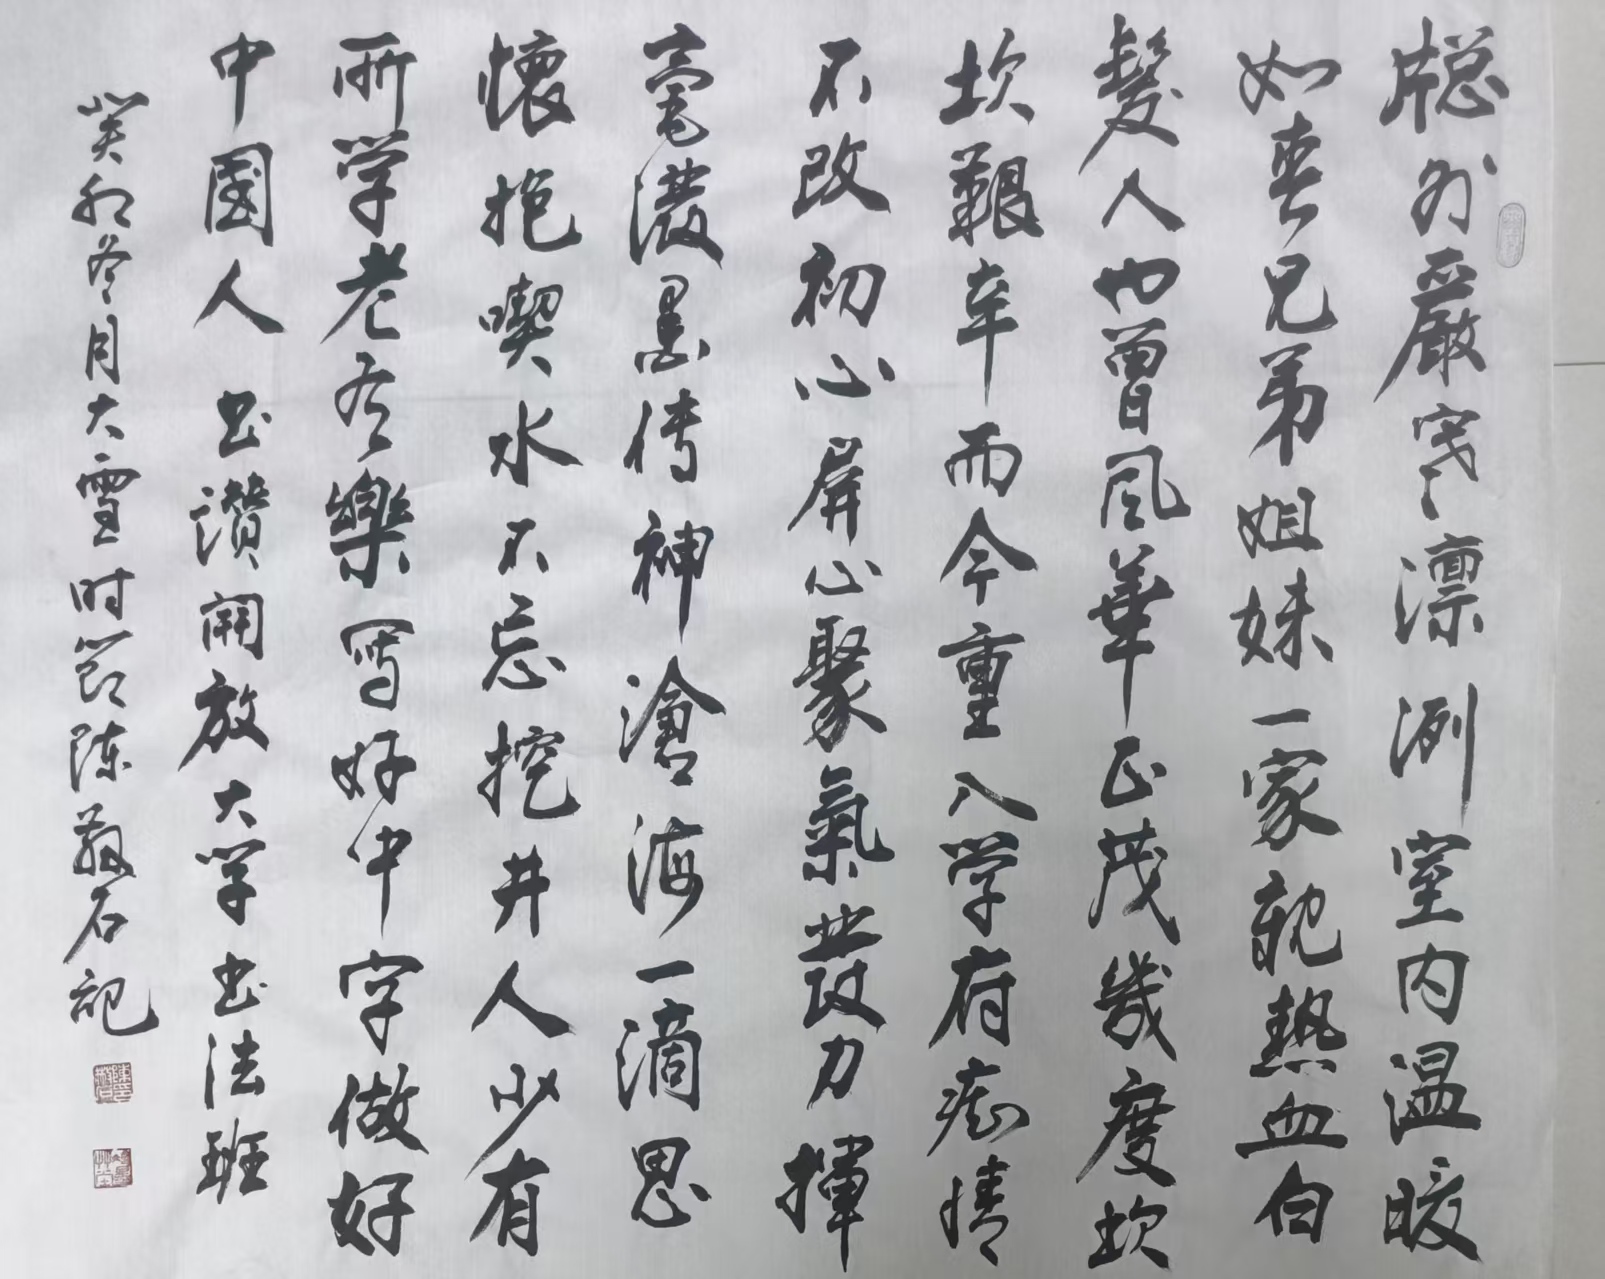 牕外嚴寒凛冽室内温暖
如春兄弟姐妹一家親熱血白
髮人也曾風華正茂幾度坎
坎艱辛而今重入学府痴情
不改初心屏心聚氣發力揮
毫濃墨传神滄海一滴思
懷抱喫水不忘挖井人少有
所学老有樂寫好中字做好
中國人 书讚開放大学书法班
癸卯冬月大雪时節陈敬石记